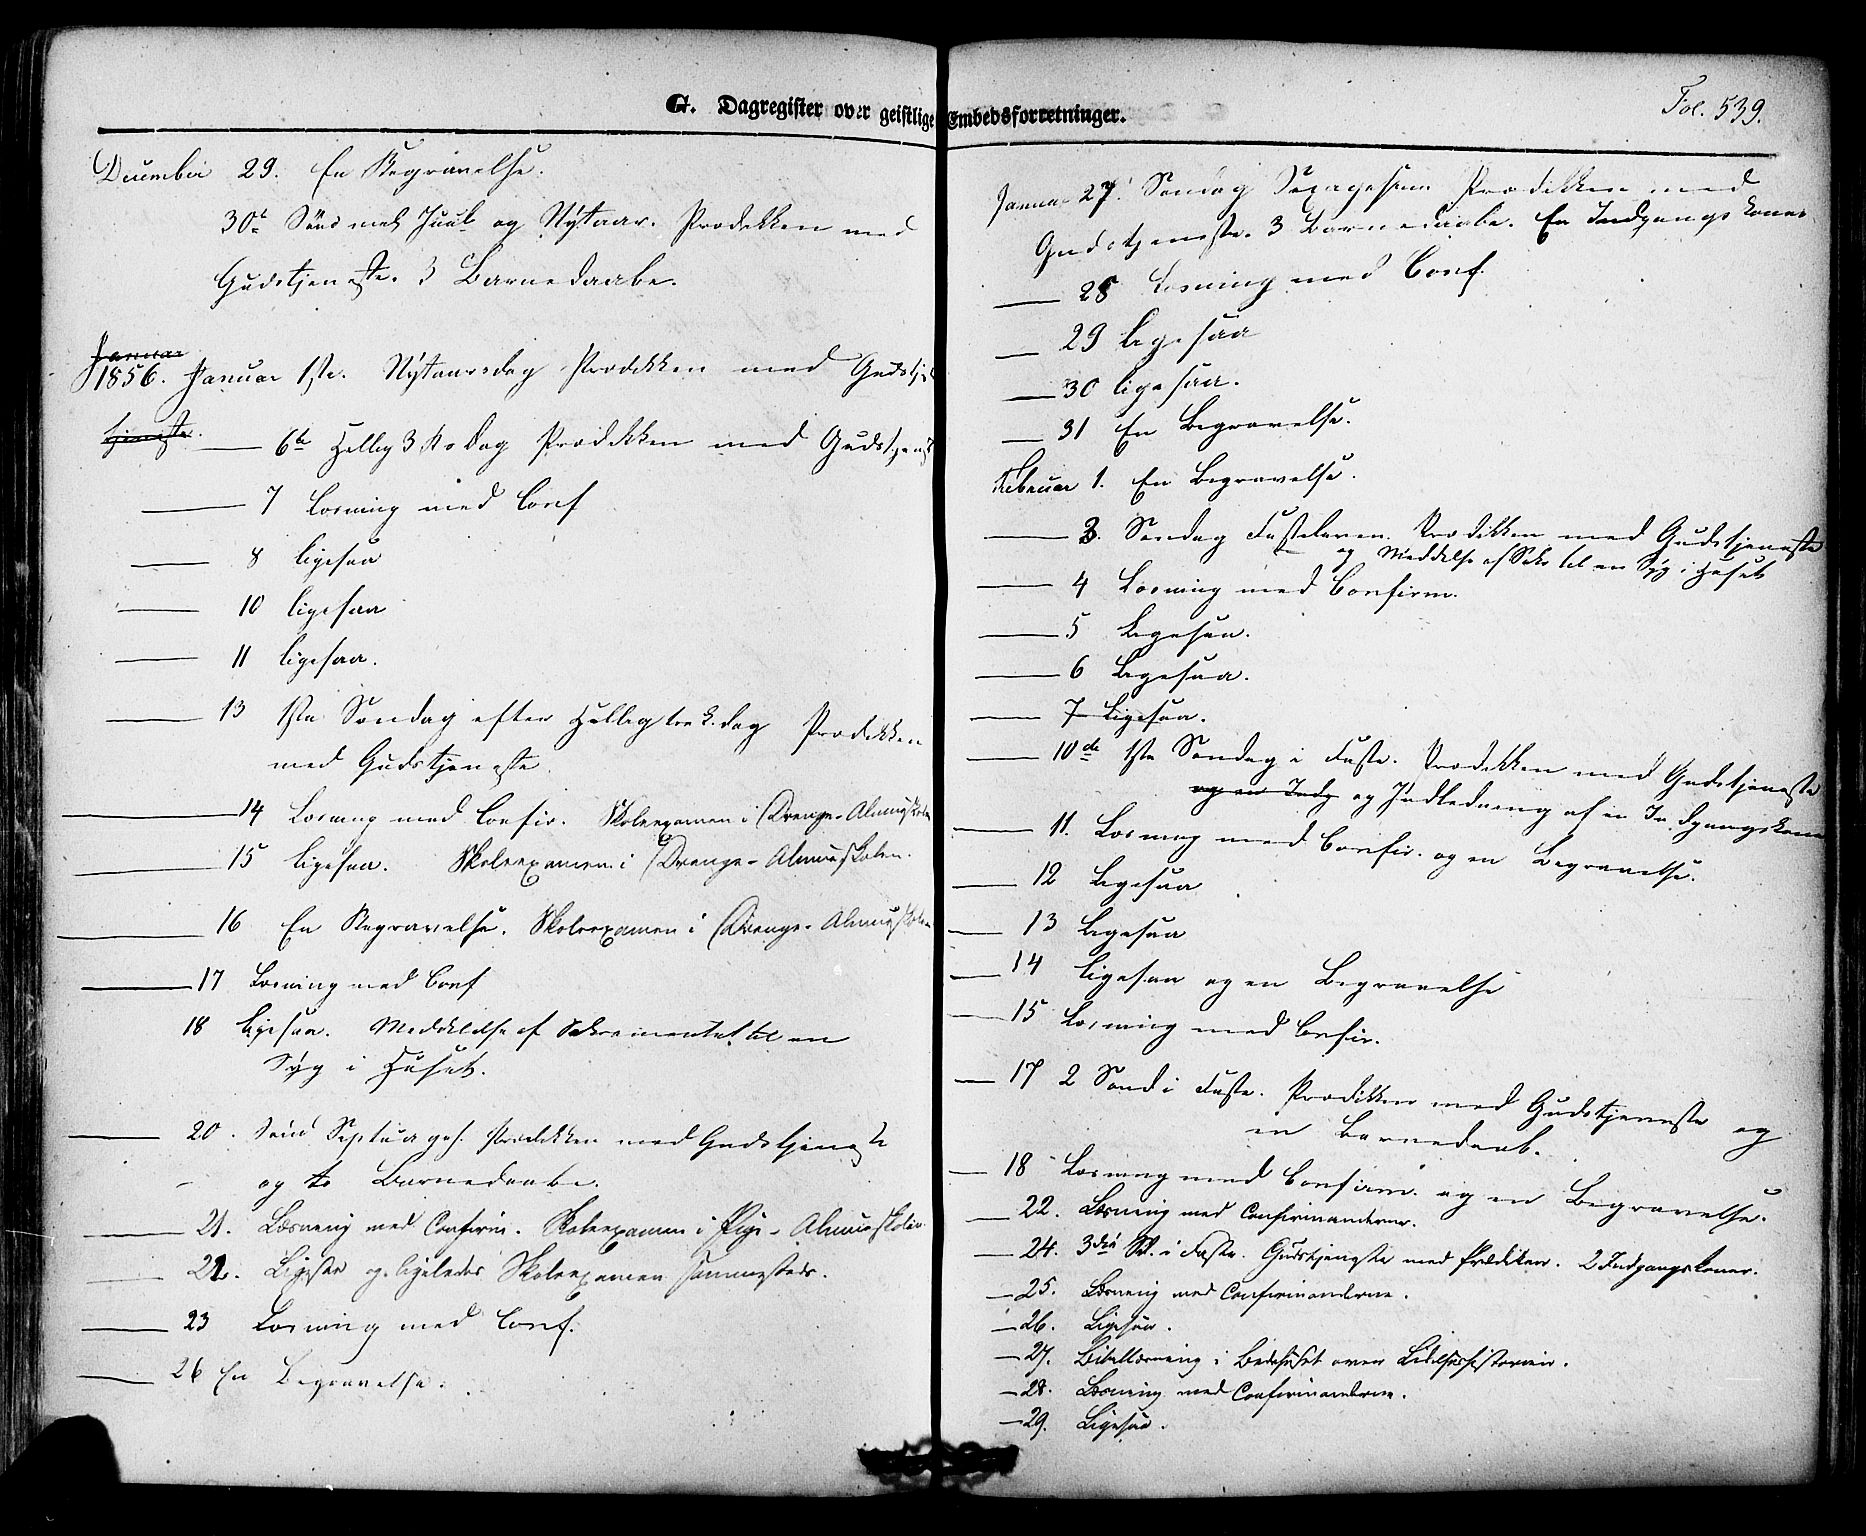 G. Dagregister over geistlige Embedsforretninger.
Fol. 539.
December 29. En Begravelse.
30te Sönd mel Juul og Nÿtaar. Prædikken med
Gudstjeneste. 3 Barnedaabe.
Januar
1856. Januar 1ste. Nÿtaarsdag Prædikken med Gudstje
tjeneste. — 6te Hellig 3 Ko Dag Prædikken med Gudstjenest
— 7 Læsning med Conf
— 8 ligesaa
— 10 ligesaa
— 11 ligesaa.
— 13 1ste Søndag efter Hellig tre K. dag Prædikken
med Gudstjeneste.
— 14 Læsning med Confir. Skoleexamen i Drenge-Almueskolen
— 15 ligesaa. Skoleexamen i Drenge-Almueskolen.
— 16 En Begravelse. Skoleexamen i Drenge-Almueskolen
— 17 Læsning med Conf
18 ligesaa. Meddelelse af Sakramentet til en
Sÿg i Huset.
— 20. Sönd Septuages. Prædikken med Gudstjeneste
og to Barnedaabe.
— 21. Læsning med Confirm. Skoleexamen i Pige-Almueskolen.
— 22. Ligesaa og ligeledes Skoleexamen sammesteds.
— 23 Læsning med Conf.
— 26 En Begravelse.
Januar 27. Søndag Sexagesima Prædikken med
Gudstjeneste. 3 Barnedaabe. En Indgangskone
— 28 Læsning med Conf.
— 29 Ligesaa
— 30 ligesaa.
— 31 En Begravelse.
Februar 1. En Begravelse.
— 3. Søndag Fastelaven. Prædikken med Gudstjeneste
og Meddelse af Sakr til en Sÿg i Huset
— 4 Læsning med Confirm.
— 5 Ligesaa.
— 6 Ligesaa.
— 7 Ligesaa.
— 10de 1ste Søndag i Faste. Prædikken med Gudstjeneste
og en Indg og Indledning af en Indgangskone
— 11. Læsning med Confir. og en Begravelse.
— 12 Ligesaa
— 13 Ligesaa
— 14 ligesaa og en Begravelse
— 15 Læsning med Confir.
— 17 2 Sønd i Faste. Prædikken med Gudstjeneste og
en Barnedaab.
— 18 Læsning med Confirm. og en Begravelse.
— 22. Læsning med Confirmanderne.
— 24. 3die Sd. i Faste. Gudstjeneste med Prædiken. 2 Indgangskoner.
— 25. Læsning med Confirmanderne.
— 26. Ligesaa.
— 27. Bibellæsning i Bedehuset over Lidelseshistorien.
— 28. Læsning med Confirmanderne.
— 29. Ligesaa.